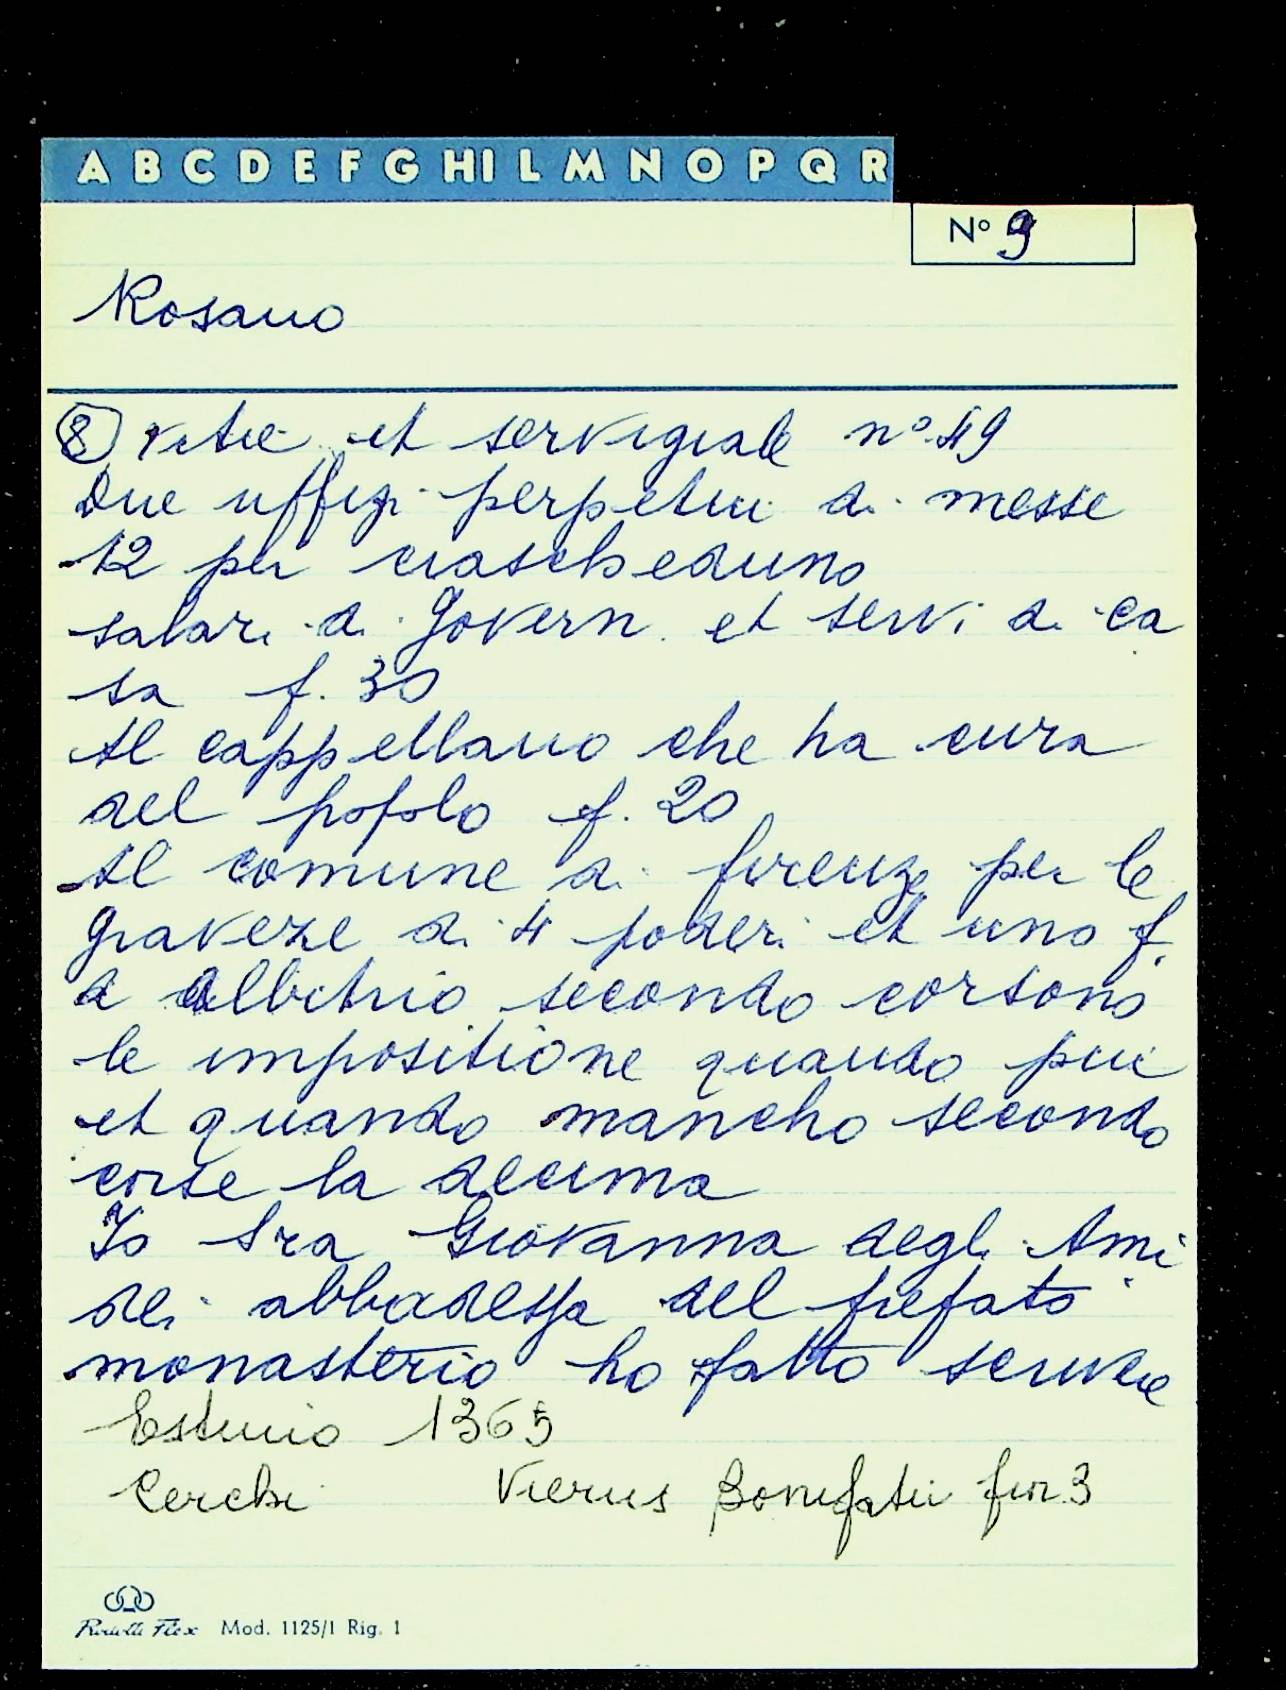 A B C D E F G H I L M N O P Q R
N° 9
Rosano
8 vitie et servigiale n° 49
Due uffizi perpetui di messe
12 per ciascheduno
salari di govern. et servi di ca
sa f. 30
Al cappellano che ha cura
del popolo f. 20
Al comune di firenze per le
graveze di 4 poderi et uno f.
d albitrio secondo corsono
le impositione quando piu
et quando mancho secondo
corse la decima
Io Sra Giovanna degli Ami
dei abbadessa del prefato
monasterio ho fatto scrivere
Estimo 1365
Cerchi Vierus Bonifatii fior 3
Mod. 1125/1 Rig. 1